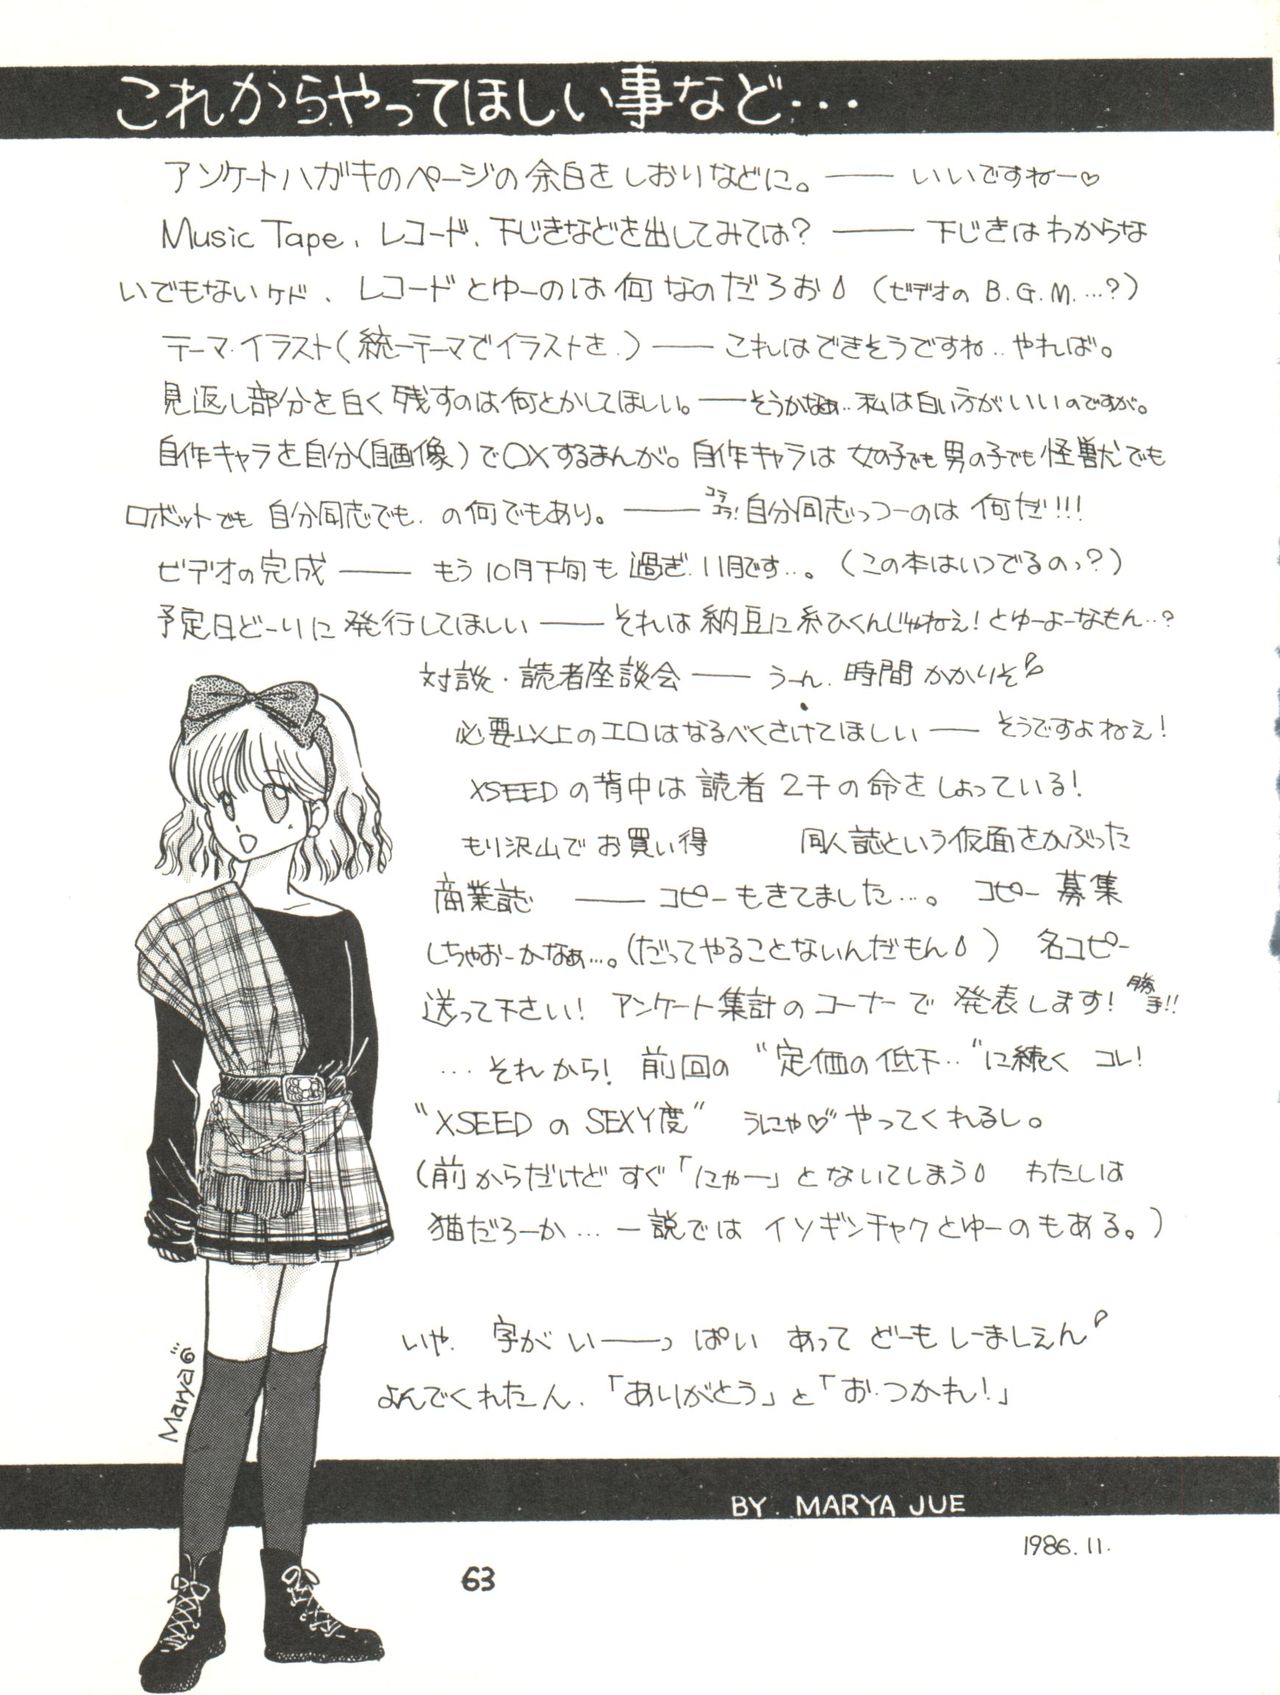 これからやってほしい事など・・・
アンケートハガキのページの余白をしおりなどに。── いいですねー♡
Music Tape、レコード、下じきなどを出してみては？ ── 下じきはわからな
いでもないケド、レコードとゆーのは何なのだろお（ビデオの B.G.M.…？）
テーマ・イラスト（統一テーマでイラストを.）── これはできそうですね..やれば。
見返し部分を白く残すのは何とかしてほしい。── そうかなぁ..私は白い方がいいのですが。
自作キャラを自分（自画像）で〇×するまんが。自作キャラは女の子でも男の子でも怪獣でも
ロボットでも自分同志でも.の何でもあり。── コラコラ!自分同志っつーのは何だ!!!
ビデオの完成 ── もう10月下旬も過ぎ.11月です…。（この本はいつでるのっ？）
予定日どーりに発行してほしい ── それは納豆に糸ひくんじゃねえ！とゆーよーなもん…？
対談・読者座談会 ── うーん.時間かかりそ
必要以上のエロはなるべくさけてほしい ── そうですよねえ！
XSEEDの背中は読者2千の命をしょっている！
もり沢山でお買い得　同人誌という仮面をかぶった
商業誌 ── コピーもきてました…。コピー募集
しちゃおーかなぁ…。（だってやることないんだもん）名コピー
送って下さい！アンケート集計のコーナーで発表します！勝手!!
…それから！前回の“定価の低下…”に続くコレ！
“XSEEDのSEXY度”うにゃ♡やってくれるし。
（前からだけどすぐ「にゃー」とないてしまう わたしは
猫だろーか…一説ではイソギンチャクとゆーのもある。）
いや.字がい──っぱいあってどーもしーましぇん
よんでくれたん.「ありがとう」と「お.つかれ！」
Marya
BY. MARYA JUE
1986.11.
63